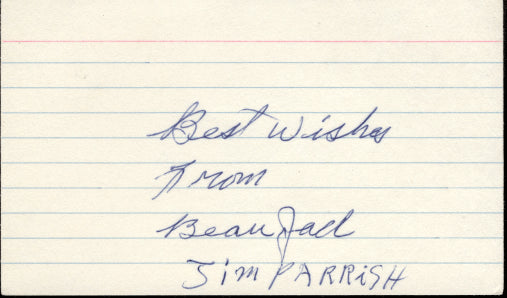 Best Wishes
From
Beau Jack
Jim PARRiSH